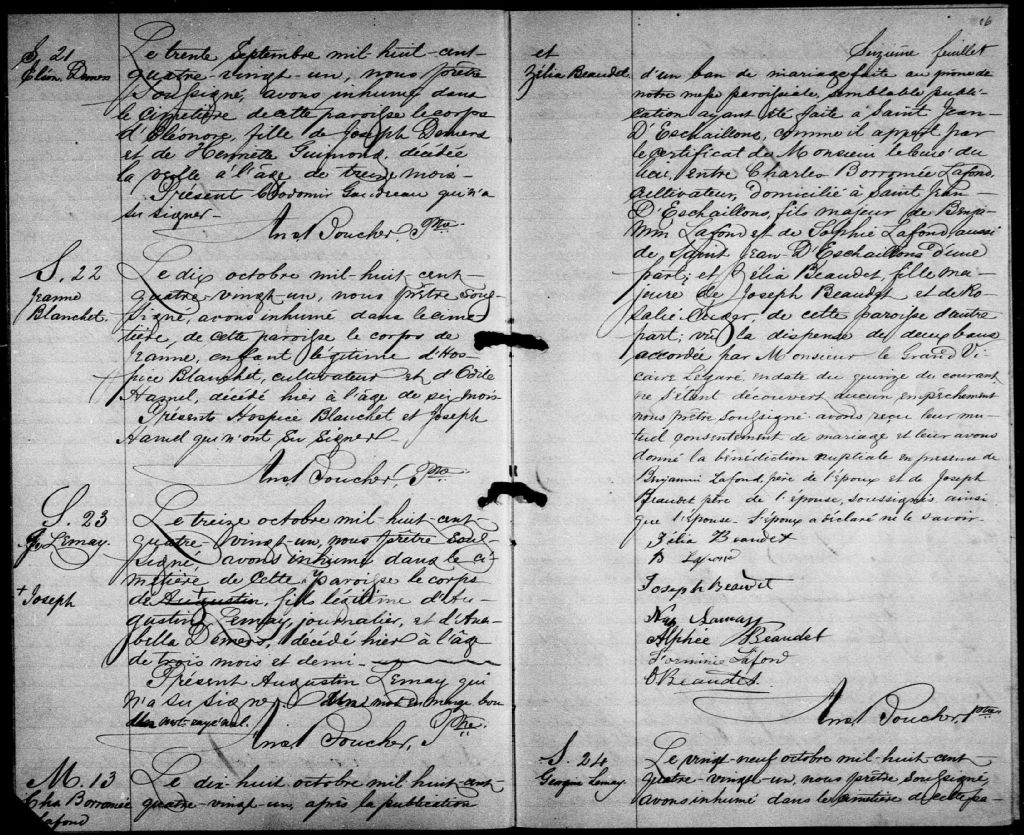 S. 21
Eléon. Demers
Le trente Septembre mil-huit-cent-
quatre-vingt-un, nous prêtre
soussigné, avons inhumé dans
le cimetière de cette paroisse le corps
d'Eléonore, fille de Joseph Demers
et de Henriette Guimond, décédée
la veille à l'âge de treize mois-
Présent Clodomir Gaudreau qui n'a
su signer-
Anst Poucher, Ptre
S. 22
Jeanne
Blanchet.
Le dix octobre mil-huit-cent-
quatre-vingt-un, nous prêtre sous-
signé, avons inhumé dans le cime-
tière, de cette paroisse le corps de
Jeanne, enfant légitime d'Hos-
pice Blanchet, cultivateur et d'Odile
Hamel, décédé hier à l'âge de six mois
Présents Hospice Blanchet et Joseph
Hamel qui n'ont su signer-
Anst Poucher, Ptre
S. 23
Lemay.
+ Joseph
Le treize octobre mil-huit-cent-
quatre-vingt-un, nous prêtre sous-
signé, avons inhumé dans le ci-
metière de cette paroisse le corps
de + Augustin, fils légitime d'Au-
gustin Lemay, journalier, et d'Ara-
bella Demers, décédé hier à l'âge
de trois mois et demi-
Présent Augustin Lemay qui
n'a su signer. Un mot en marge bon
un mot rayé nul.
Anst Poucher, Ptre
M. 13
Chs Borromée
Lafond
Le dix-huit octobre mil-huit-cent
quatre-vingt-un, après la publication
16
Seizième feuillet
et
Zélia Beaudet
d'un ban de mariage faite au prône de
notre messe paroissiale, semblable publi-
cation ayant été faite à Saint Jean-
D'Eschaillons, comme il appert par
le certificat de Monsieur le Curé du
lieu, entre Charles Borromée Lafond,
cultivateur, domicilié à Saint Jean
D'Eschaillons, fils majeur de Benja-
min Lafond et de Sophie Lafond aussi
de Saint Jean-D'Eschaillons d'une
part; et Zélia Beaudet, fille ma-
jeure de Joseph Beaudet et de Ro-
salie, de cette paroisse d'autre
part; vu la dispense de deux bans
accordée par Monsieur le Grand Vi-
caire Legaré, en date du quinze du courant,
ne s'étant découvert aucun empêchement
nous prêtre soussigné avons reçu leur mu-
tuel consentement de mariage et leur avons
donné la bénédiction nuptiale en présence de
Benjamin Lafond, père de l'époux et de Joseph
Beaudet père de l'épouse, soussignés ainsi
que l'épouse- L'époux a déclaré ne le savoir-
Zélia Beaudet
B Lafond
Joseph Beaudet
Alphée Beaudet
Lafond
O Beaudet.
Anst Poucher, Ptre
S. 24
Lemay.
Le vingt-neuf octobre mil-huit-cent
quatre-vingt-un, nous prêtre soussigné
avons inhumé dans le cimetière de cette pa-